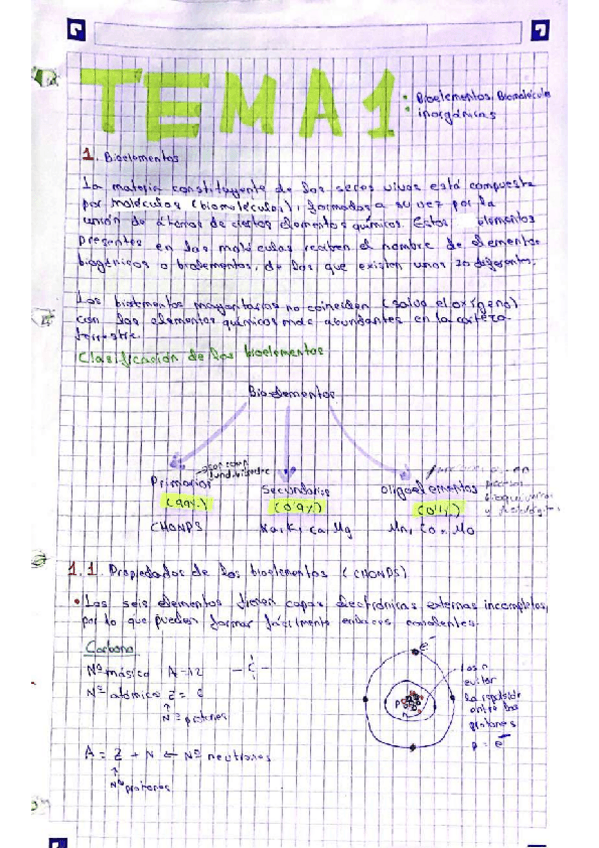 TEMA 1
Bioelementos. Biomolécula
inorgánicas
1. Bioelementos
La materia constituyente de los seres vivos está compuesta
por moléculas (biomoléculas), formadas a su vez por la
unión de átomos de ciertos elementos químicos. Estos elementos
presentes en las moléculas reciben el nombre de elementos
biogénicos o bioelementos, de los que existen unos 70 diferentes.
Los bioelementos mayoritarios no coinciden (salvo el oxígeno)
con los elementos químicos más abundantes en la corteza
terrestre.
Clasificación de los bioelementos
Bioelementos
Primarios secundarios oligoelementos
(99%) (0'9%) (0'1%)
CHONPS Na, K, Ca, Mg Mn, Co, Mo
1.1. Propiedades de los bioelementos (CHONPS)
• Los seis elementos tienen capas electrónicas externas incompletas,
por lo que pueden formar fácilmente enlaces covalentes.
Carbono
Nº másico A=12 -C-
Nº atómico Z = 6
Nº protones
A = Z + N ← Nº neutrones
Nº protones
e-
p+
n
Los n
evitan
la repulsión
entre los
protones
p = e-